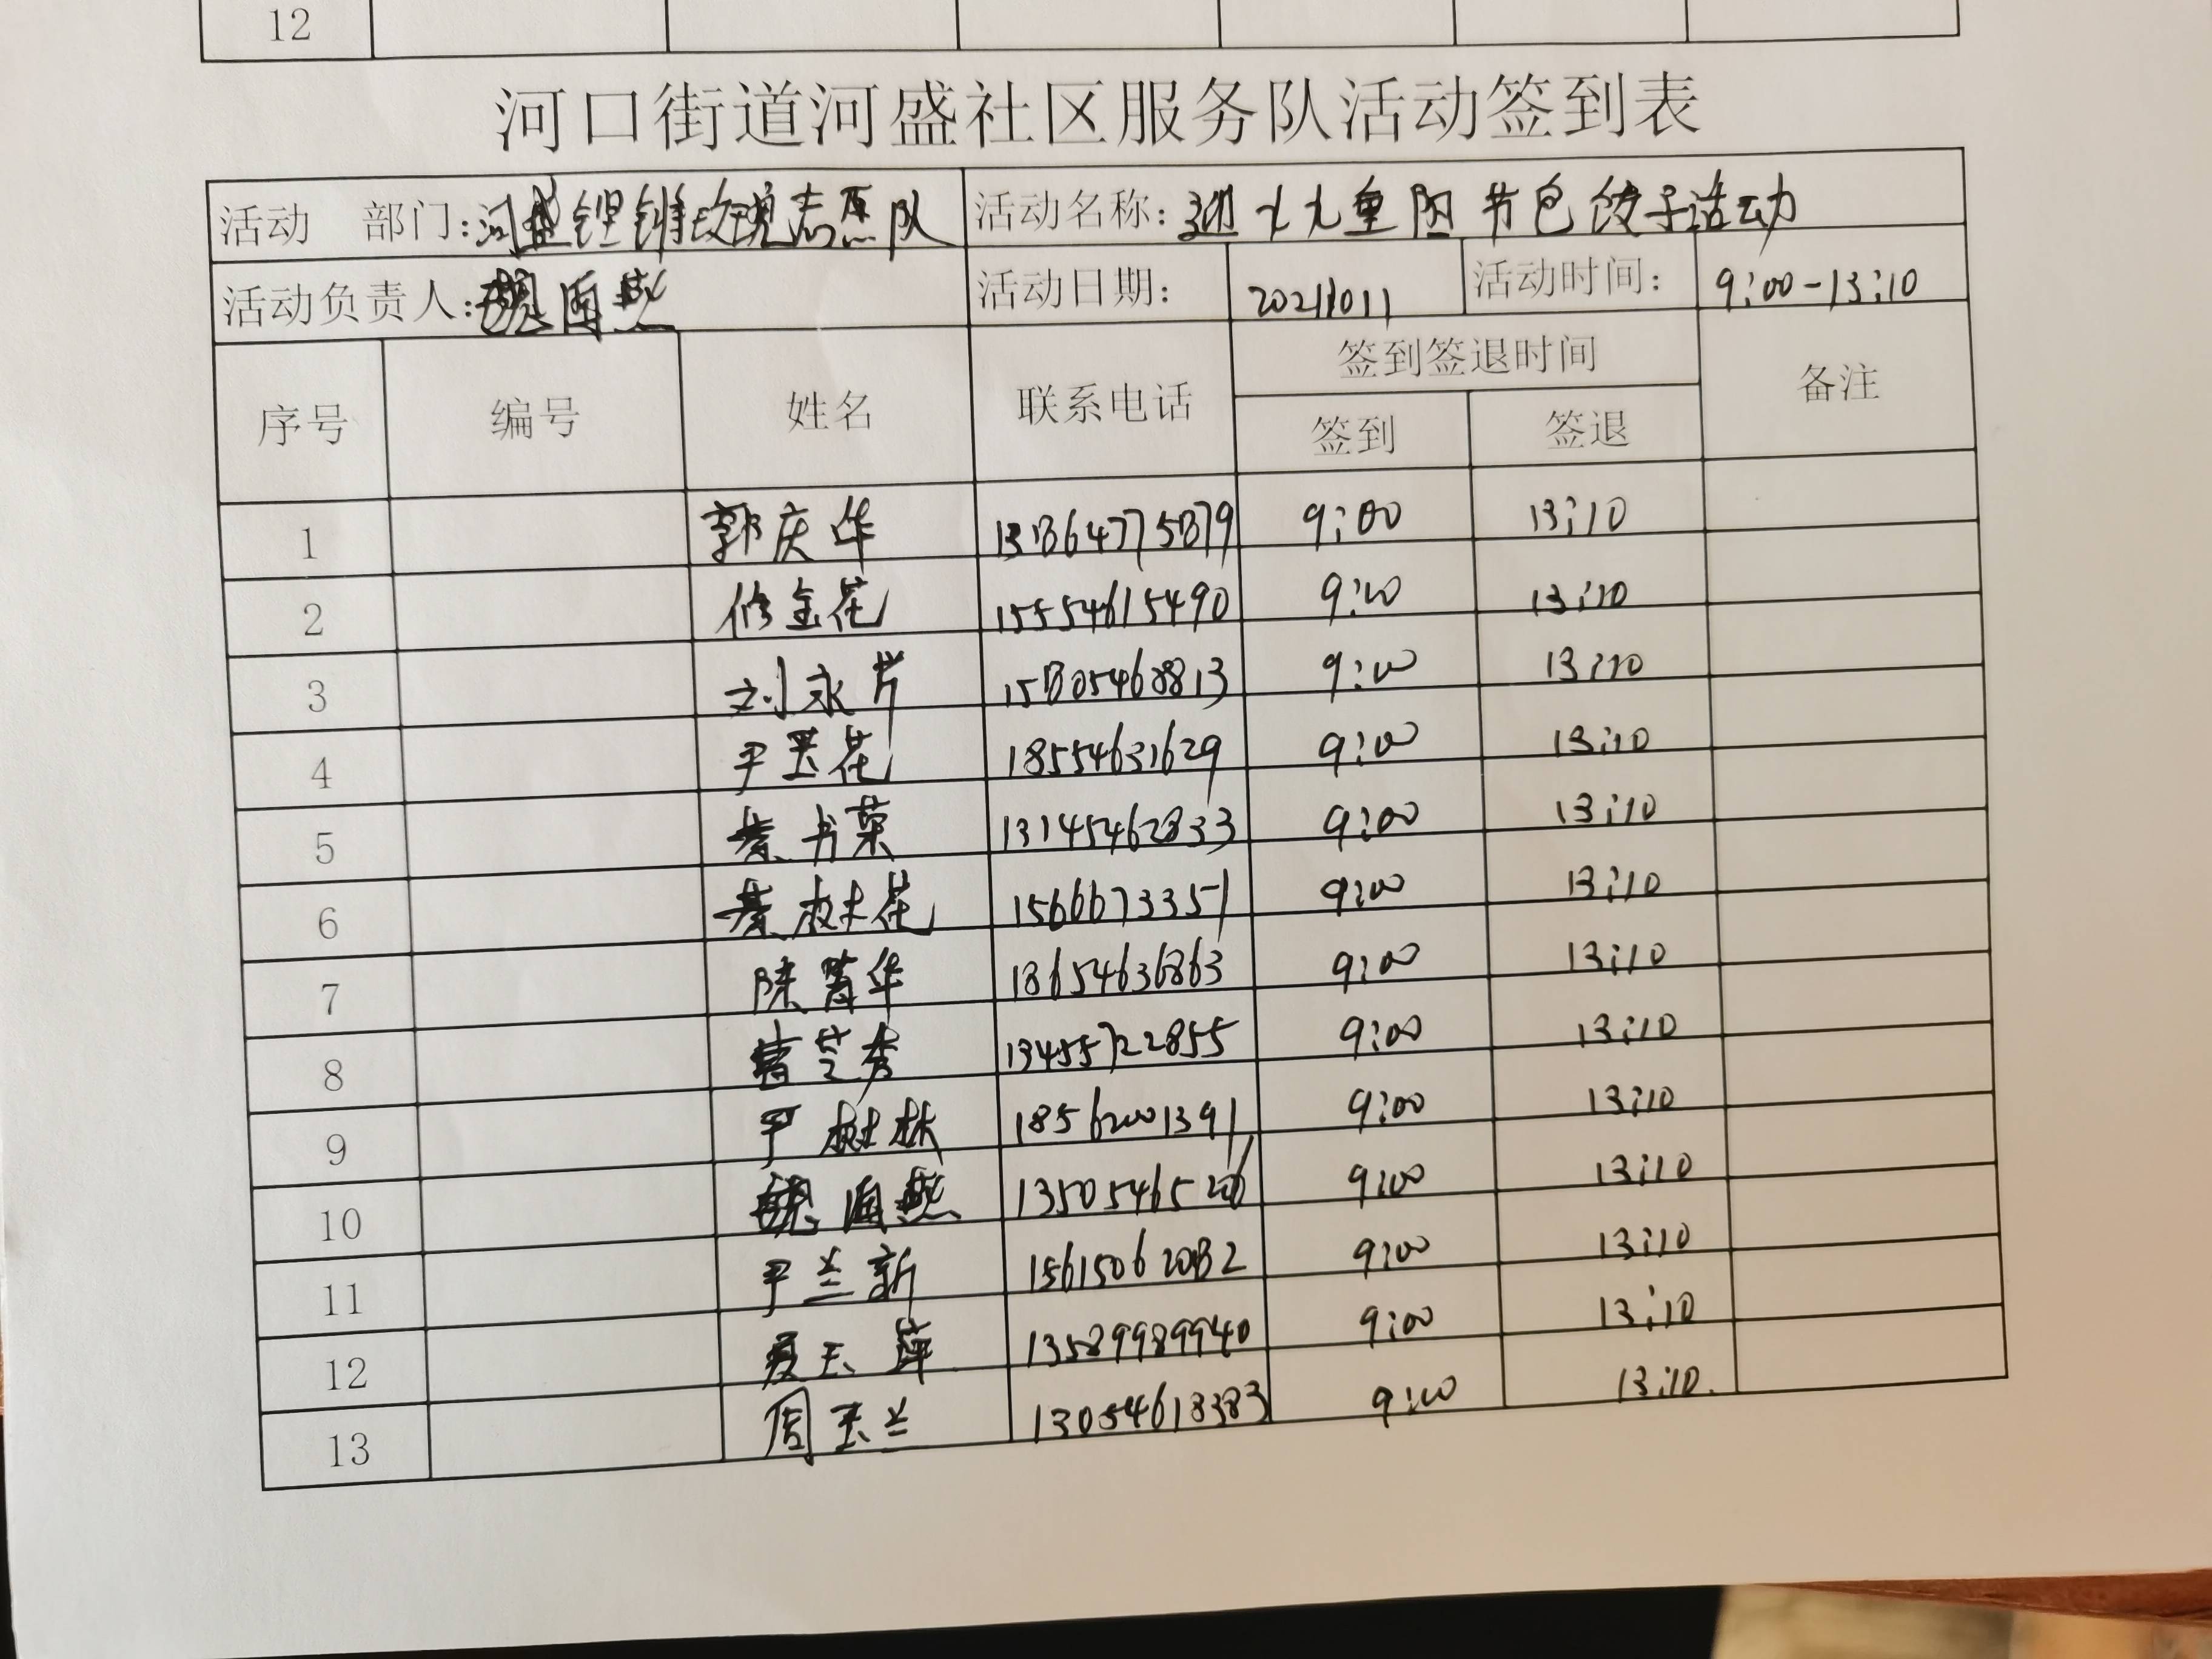 12
河口街道河盛社区服务队活动签到表
活动 部门:河盛铿锵玫瑰志愿队 活动名称: 迎九九重阳节包饺子活动
活动负责人:魏海燕 活动日期: 20211011 活动时间: 9:00-13:10
序号 编号 姓名 联系电话 签到签退时间 备注
签到 签退
1 郭庆华 9:00 13:10
2 修金花 15554615490 9:00 13:10
3 刘永芹 9:00 13:10
4 尹玉花 18554631629 9:00 13:10
5 綦书荣 13145462833 9:00 13:10
6 綦树花 1566673351 9:00 13:10
7 陈菁华 18654636863 9:00 13:10
8 曹芝秀 13455722855 9:00 13:10
9 尹树林 18562001391 9:00 13:10
10 魏海燕 9:00 13:10
11 尹兰新 9:00 13:10
12 夏玉萍 13589989940 9:00 13:10
13 周玉兰 13054618383 9:00 13:10.